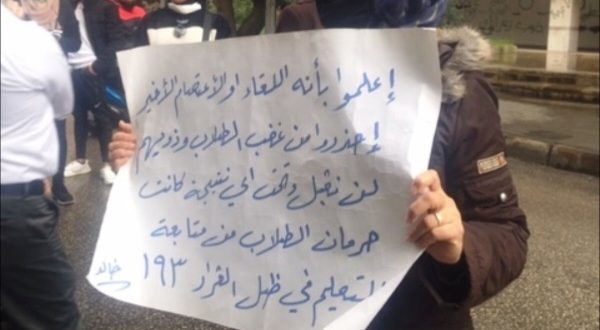 إعلموا بأنه اللقاء او الأعتصام الأخير
إحذروا من غضب الطلاب وذويهم
لن نقبل وتحت اي نتيجة كانت
حرمان الطلاب من متابعة
التعليم في ظل القرار ١٩٣
خالد